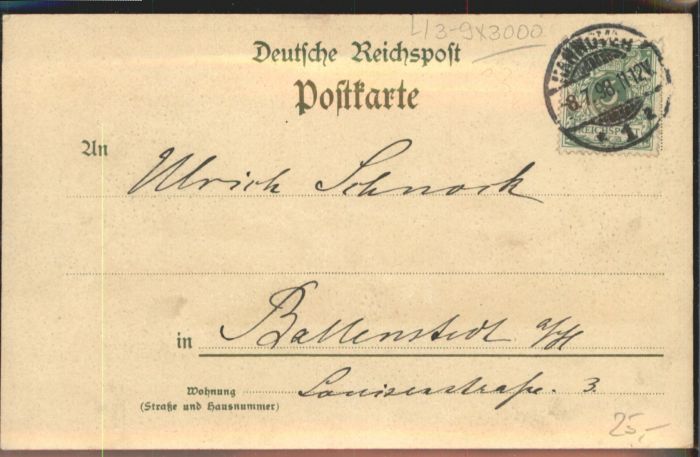 L13-9x3000
Deutsche Reichspost
Postkarte
HANNOVER
8.7.98.11-12V.
* 1 z
REICHSPOST
An
Ulrich Schnock
in Ballenstedt a/H
Wohnung
(Straße und Hausnummer)
Louisenstraße. 3.
25,-